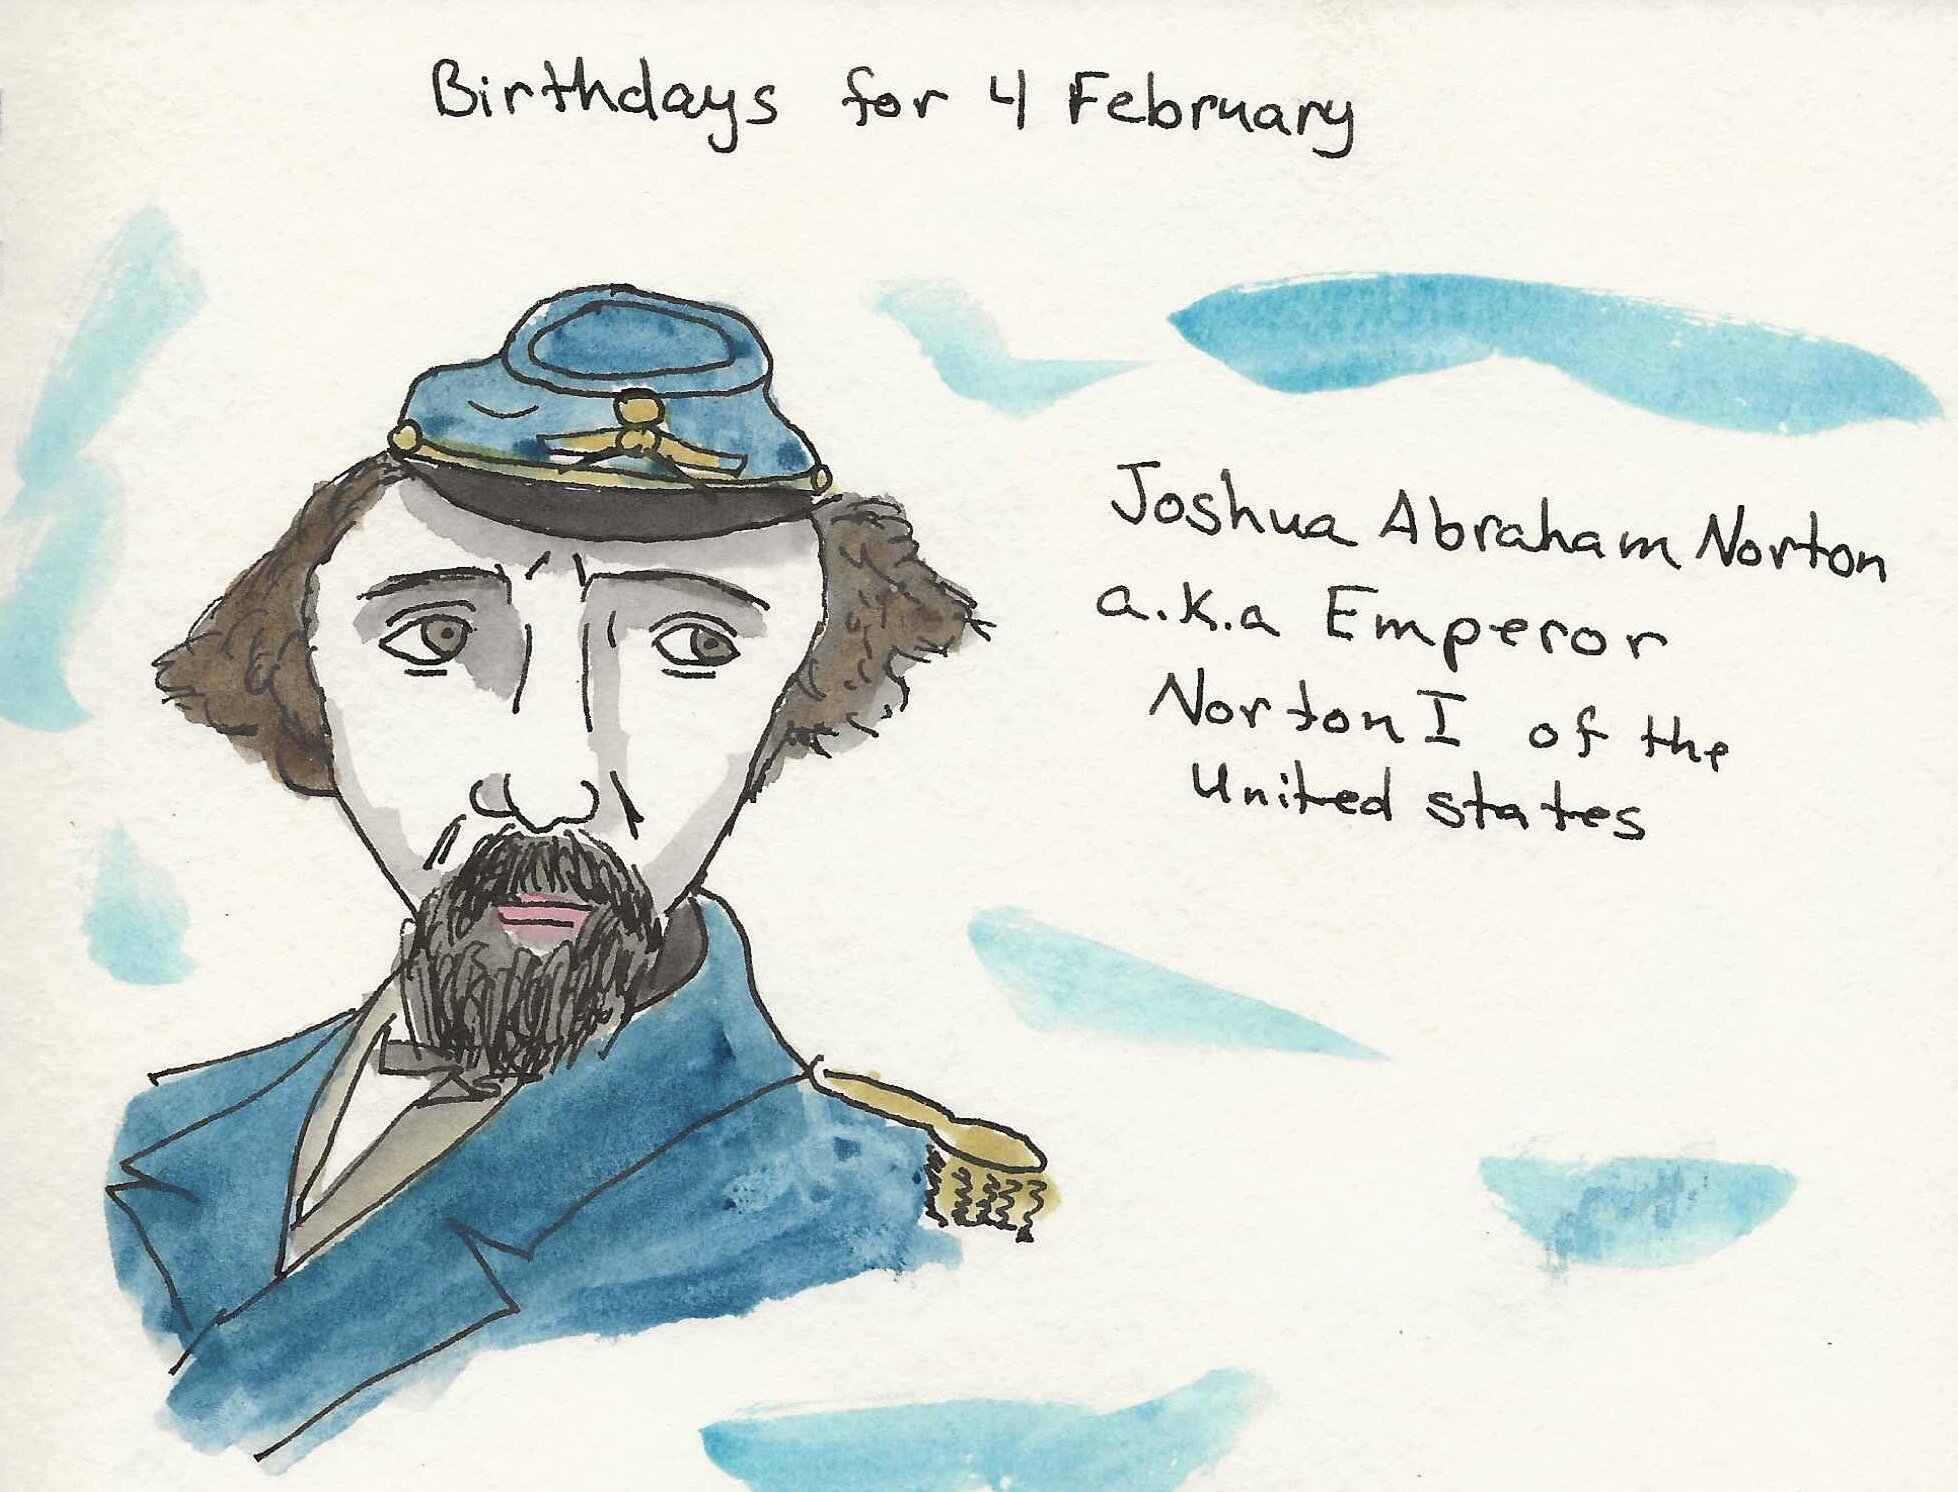 Birthdays for 4 February
Joshua Abraham Norton
a.k.a Emperor
Norton I of the
United states